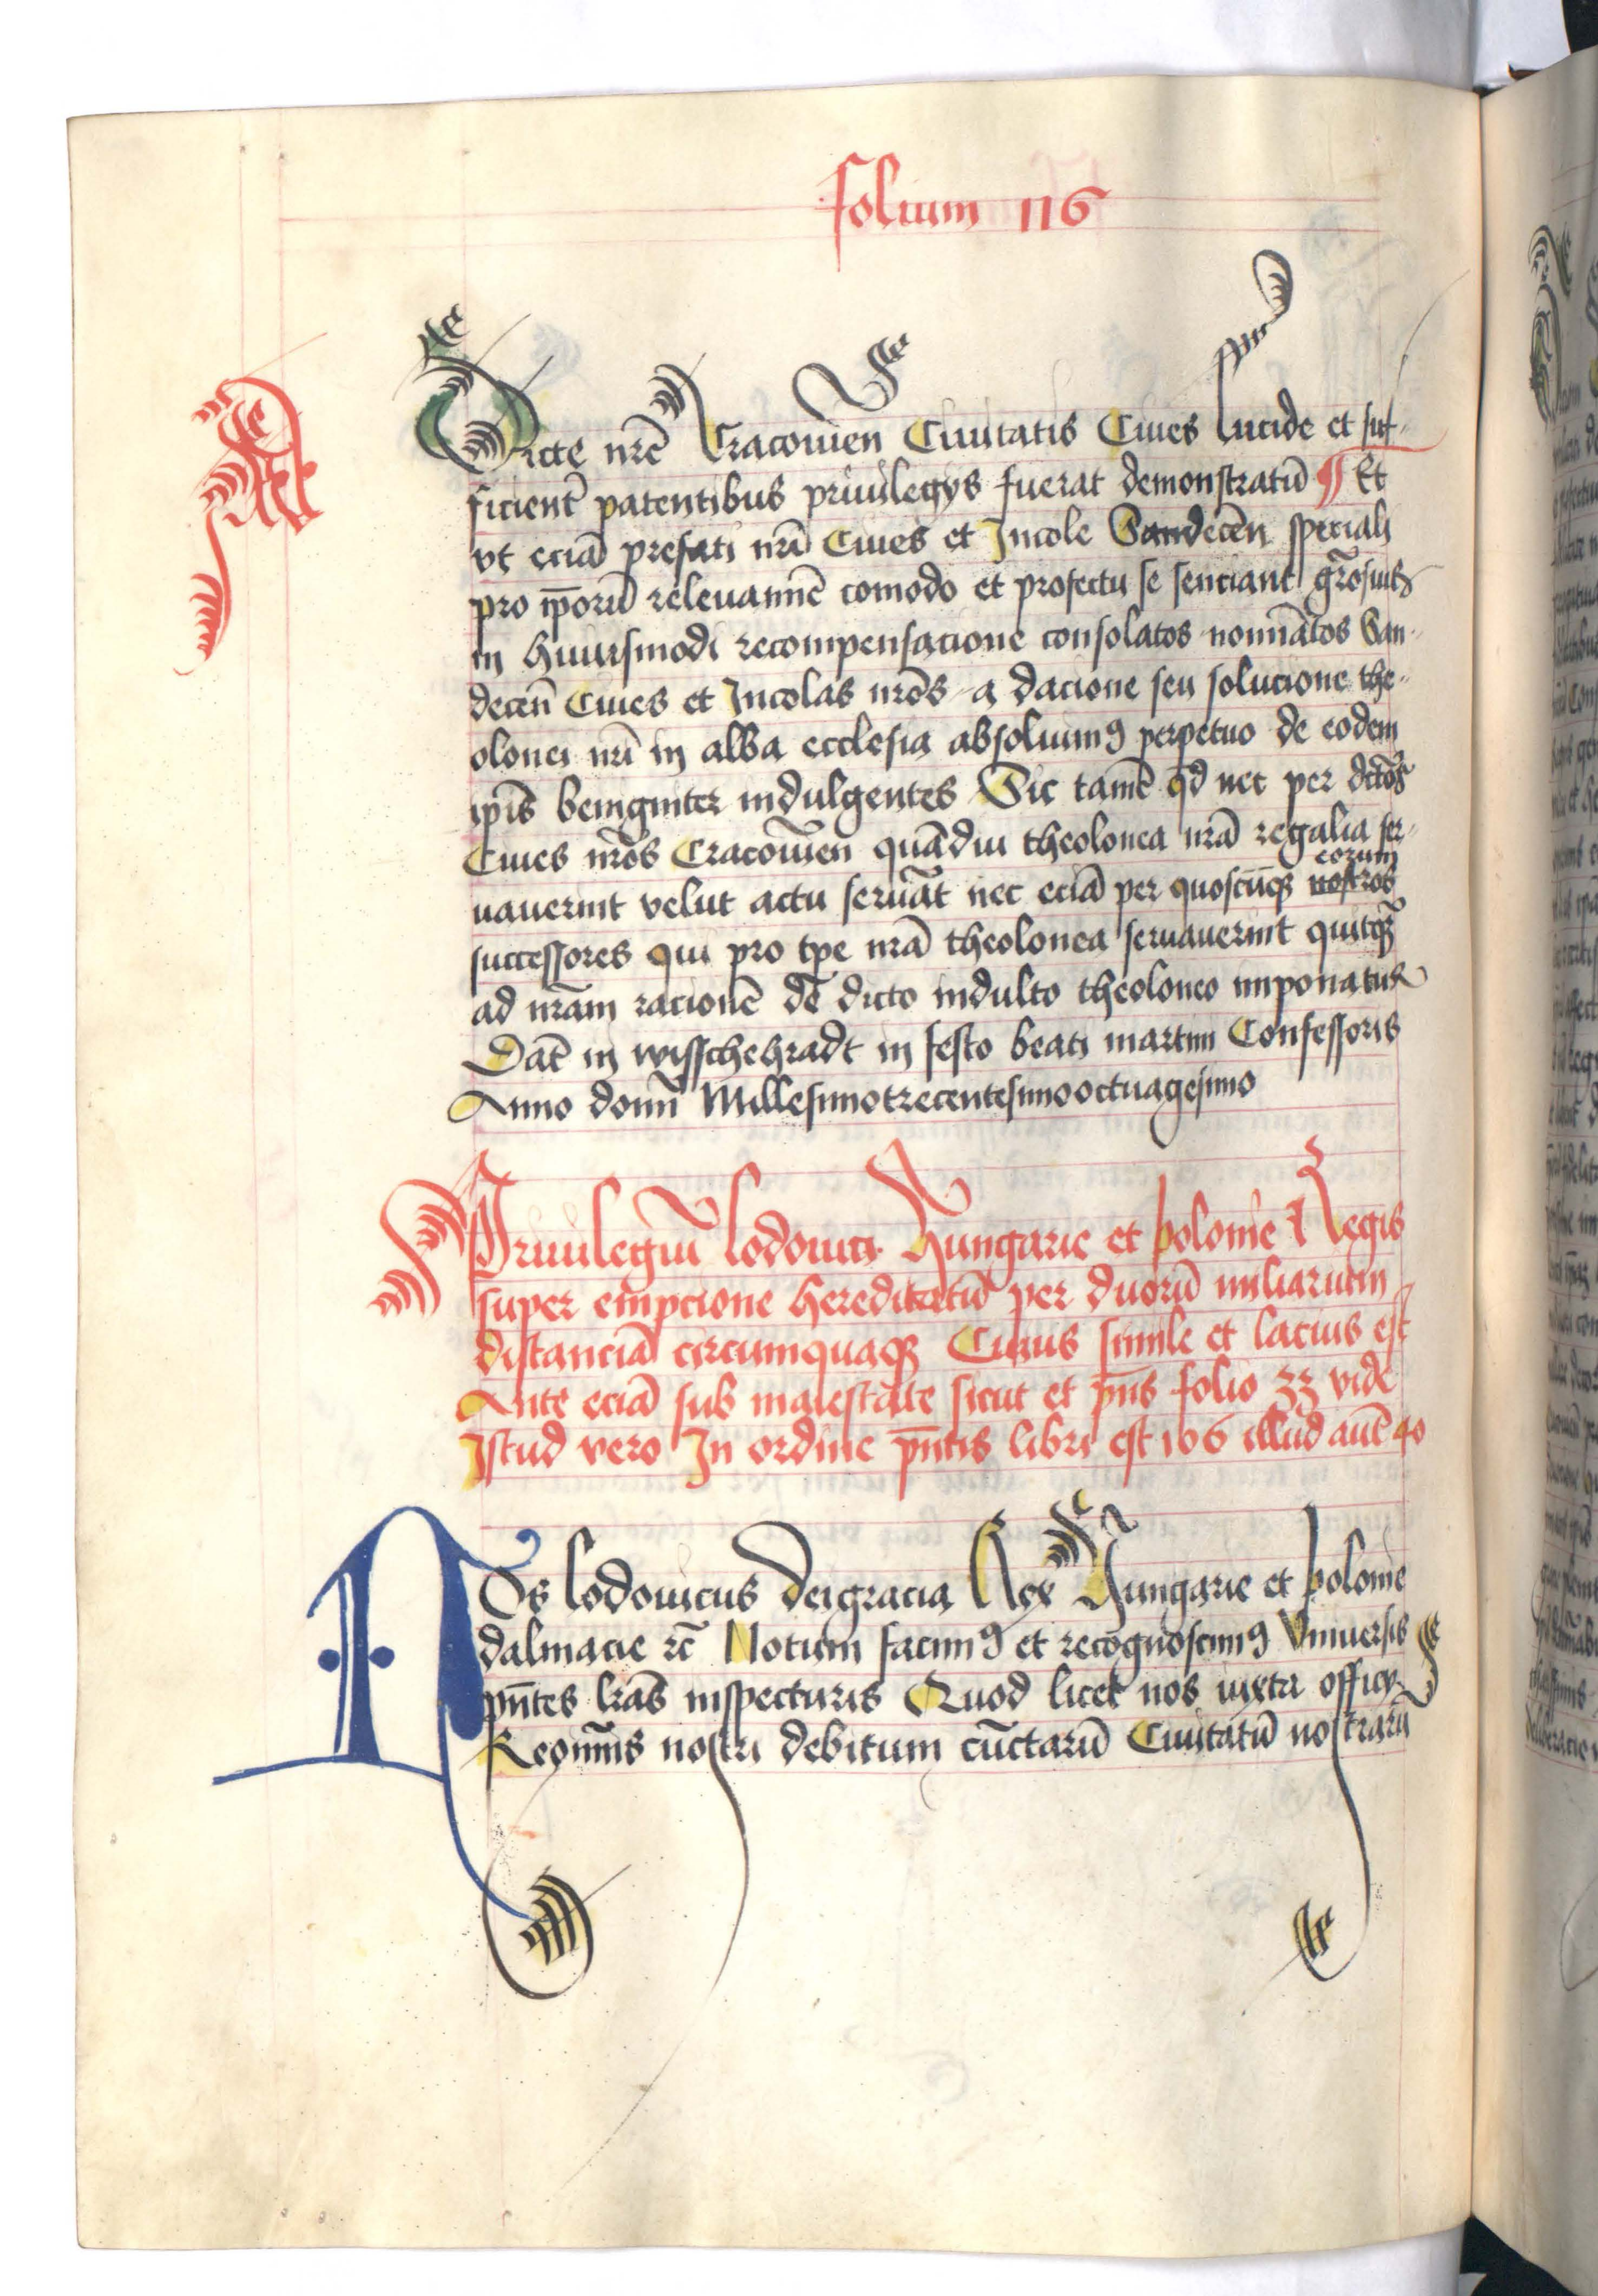 folium 116
Dicte nrē Cracouien̄ Ciuitatis Ciues lucide et suf-
ficient̄ patentibus priuilegys fuerat demonstratū ¶ Et
vt eciā prefati nri Ciues et Incole Sandecen̄ speciali
pro ip̄orū releuamīe comodo et profectu se senciant gr̄osius
in huiusmodi recompensacione consolatos nomīatos San-
decen̄ Ciues et Incolas nrōs a dacione seu solucione the-
olonei nri in alba ecclesia absoluimꝰ perpetuo de eodem
ip̄is benigniter indulgentes Sic tamē qd nec per dictōs
Ciues nrōs Cracouien̄ quādiu theolonea nrā regalia ser-
uauerint velut actu seruāt nec eciā per quoscūqꝫ nostros eorum
successores qui pro tpe nrā theolonea seruauerint quitqꝫ
ad nrām racionē dē dicto indulto theoloneo imponatur
Dat̄ in wisschehradt in festo beati martini Confessoris
Anno domī Millesimotrecentesimooctuagesimo
Priuilegiū lodouici Hungarie et polonie Regis
super empcione hereditatū per duorū miliarium
distanciā circumquaqꝫ Cuius simile et lacius est
Ante eciā sub maiestate sicut et pn̄s folio 33 vide
Istud vero In ordine pn̄tis libri est 106 illud autē 40
NOs lodouicus deigracia Rex Hungarie et polonie
dalmacie rc̄ Notum facimꝰ et recognoscimꝰ Vniuersis
pn̄tes lrās inspecturis Quod licet nos iuxta officy
Regiminis nostri debitum cūctarū Ciuitatū nostrarū